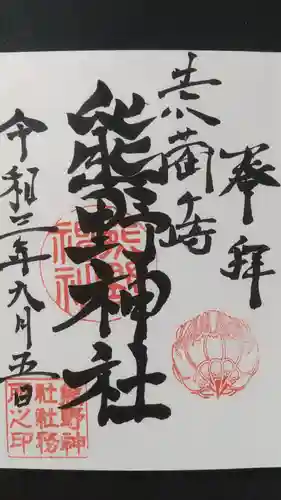 奉拝
志茂
熊野神社
令和三年九月五日
熊野神社
熊野神
社社務
所之印